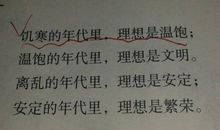 饥寒的年代里，理想是温饱；
温饱的年代里，理想是文明。
离乱的年代里，理想是安定；
安定的年代里，理想是繁荣。